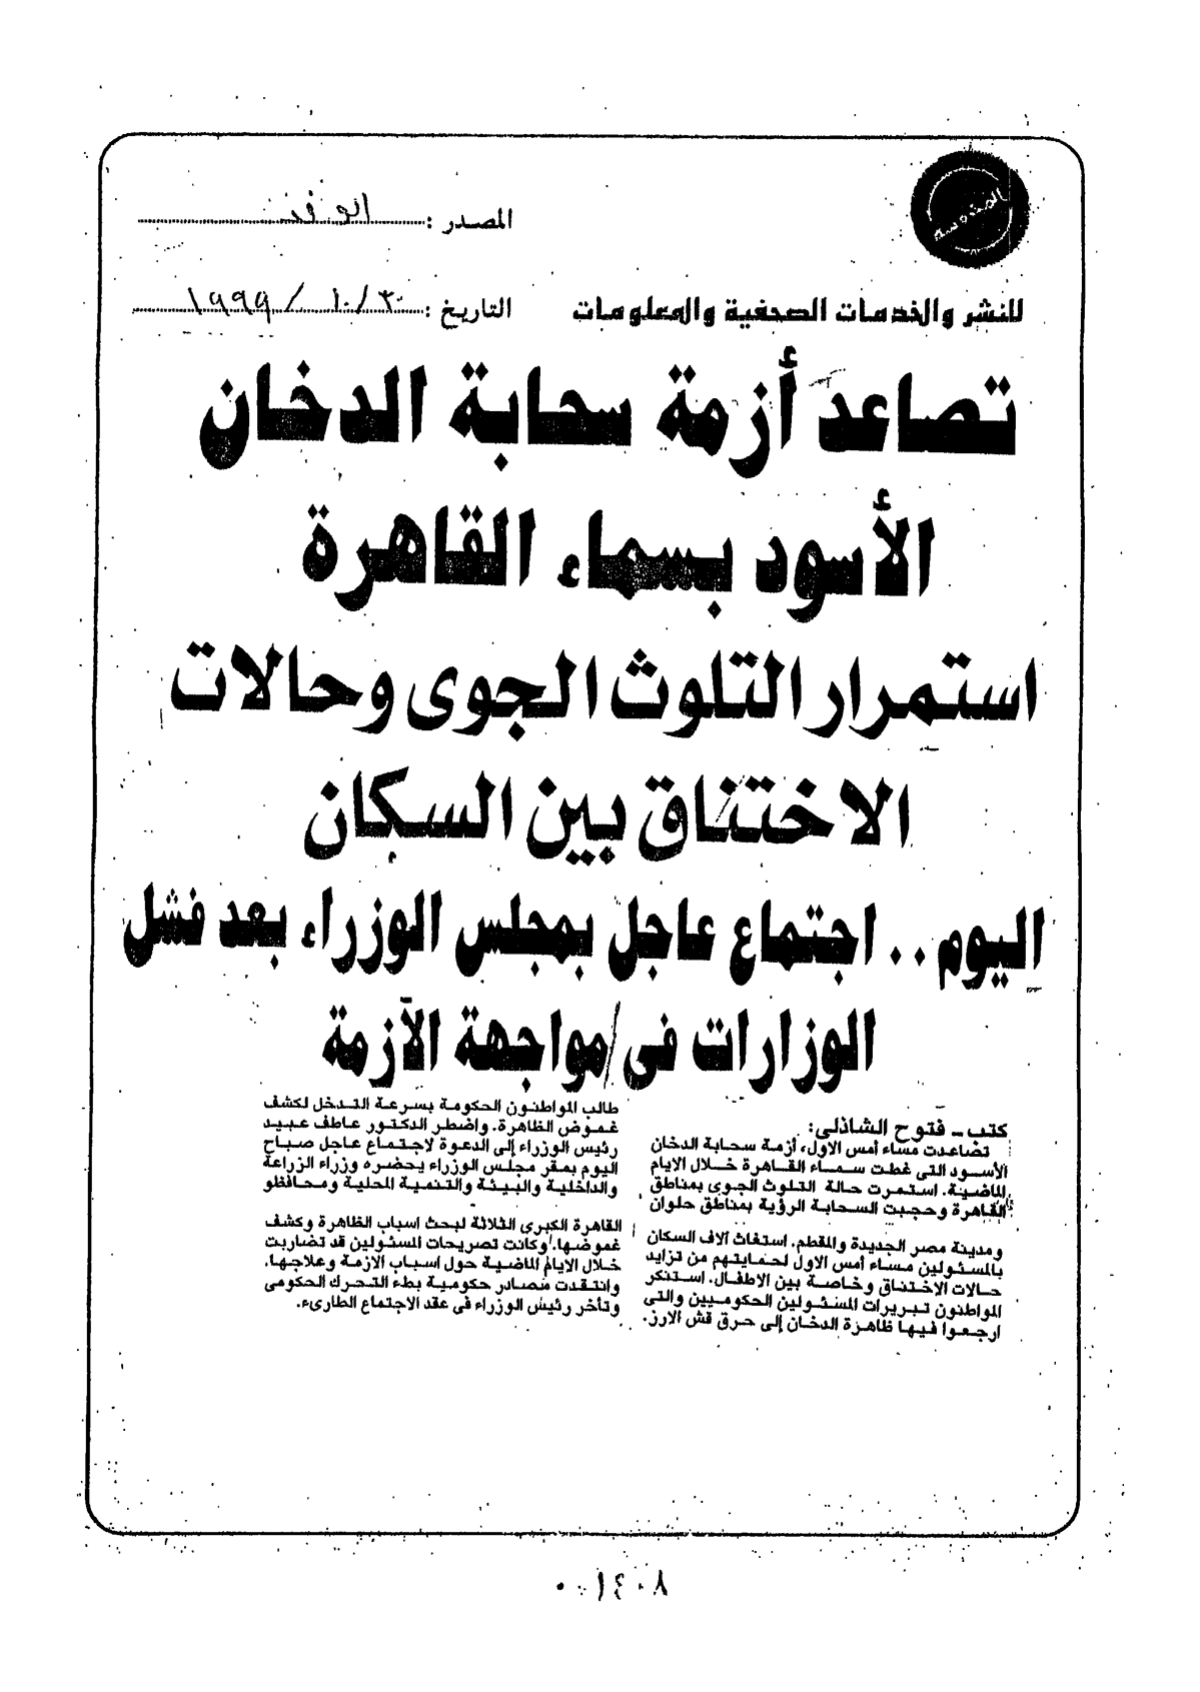 المحروسة
المصدر : الوفد
للنشر والخدمات الصحفية والمعلومات
التاريخ : ٣٠/١٠/١٩٩٩
تصاعد أزمة سحابة الدخان
الأسود بسماء القاهرة
استمرار التلوث الجوى وحالات
الاختناق بين السكان
اليوم .. اجتماع عاجل بمجلس الوزراء بعد فشل
الوزارات فى مواجهة الأزمة
كتب ـ فتوح الشاذلى:
تضاعدت مساء أمس الاول، أزمة سحابة الدخان
الأسود التى غطت سماء القاهرة خلال الايام
الماضية. استمرت حالة التلوث الجوى بمناطق
القاهرة وحجبت السحابة الرؤية بمناطق حلوان
ومدينة مصر الجديدة والمقطم. استغاث آلاف السكان
بالمسئولين مساء أمس الاول لحمايتهم من تزايد
حالات الاختناق وخاصة بين الاطفال. استنكر
المواطنون تبريرات المسئولين الحكوميين والتى
ارجعوا فيها ظاهرة الدخان إلى حرق قش الارز.
طالب المواطنون الحكومة بسرعة التدخل لكشف
غموض الظاهرة. واضطر الدكتور عاطف عبيد
رئيس الوزراء إلى الدعوة لاجتماع عاجل صباح
اليوم بمقر مجلس الوزراء يحضره وزراء الزراعة
والداخلية والبيئة والتنمية المحلية ومحافظو
القاهرة الكبرى الثلاثة لبحث اسباب الظاهرة وكشف
غموضها. وكانت تصريحات المسئولين قد تضاربت
خلال الايام الماضية حول اسباب الازمة وعلاجها.
وانتقدت مصادر حكومية بطء التحرك الحكومى
وتأخر رئيس الوزراء فى عقد الاجتماع الطارىء.
٠٠١٤٠٨